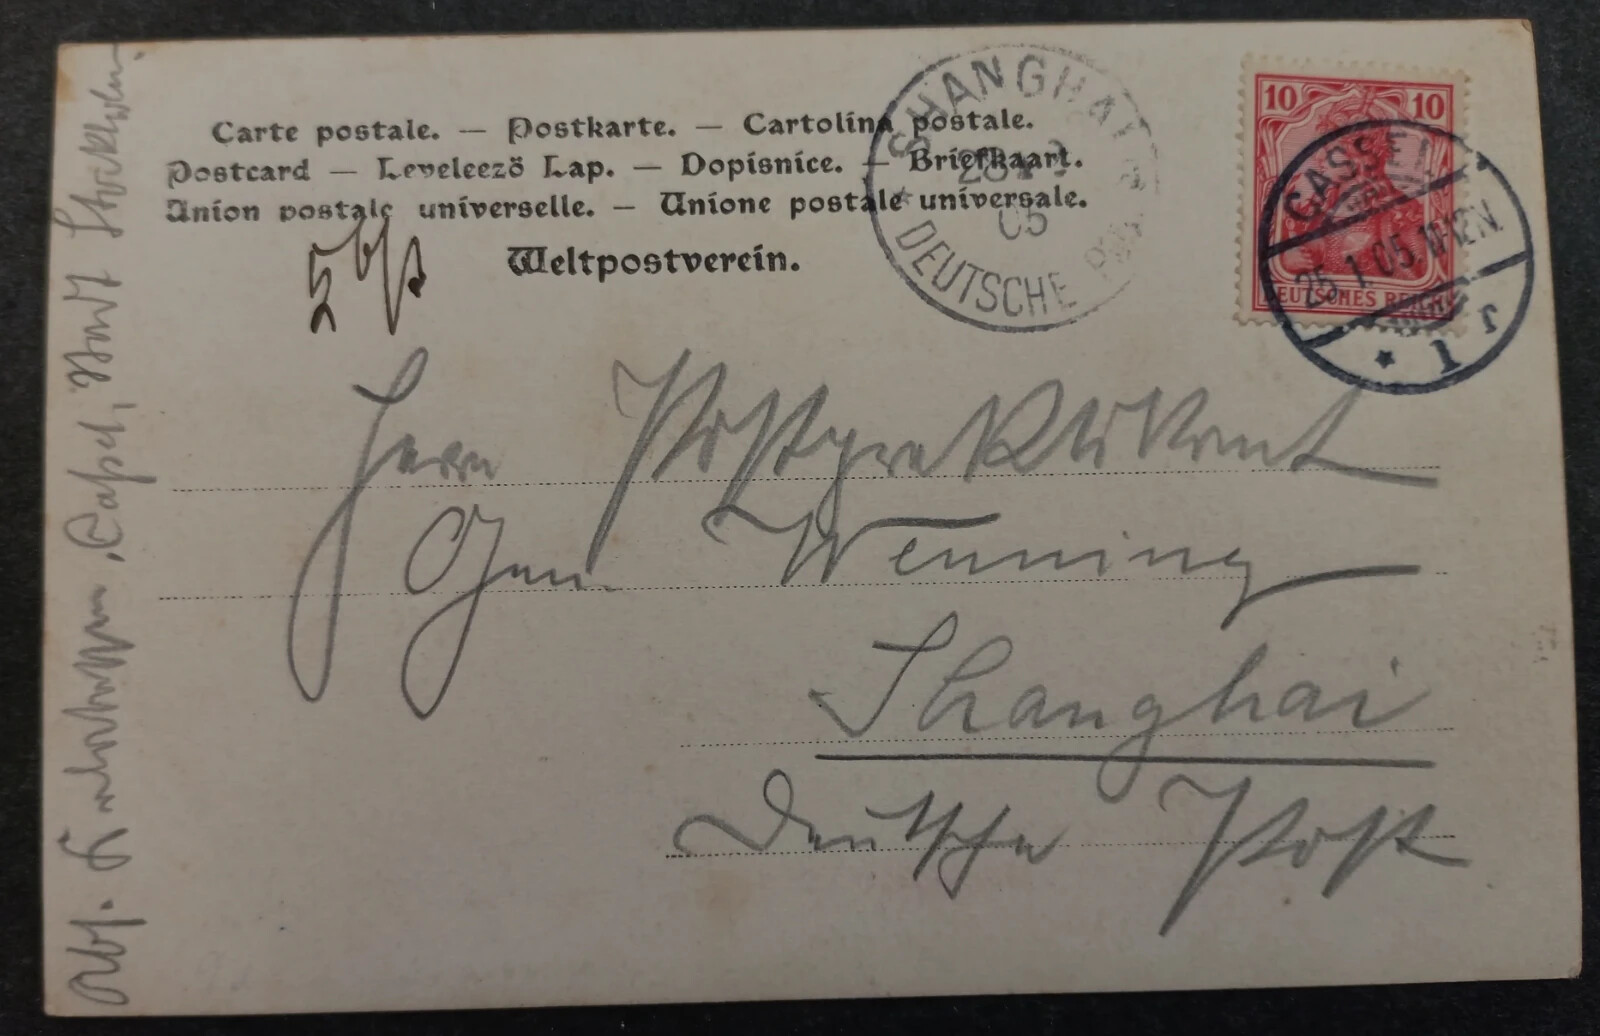 Carte postale. — Postkarte. — Cartolina postale.
Postcard — Levelező Lap. — Dopisnice. — Briefkaart.
Union postale universelle. — Unione postale universale.
Weltpostverein.
SHANGHAI
05
DEUTSCHE
10 10
DEUTSCHES REICH
CASSEL
25.1.05.11-12N.
* 1 r
Herrn Postpraktikant
Wenning
Shanghai
Deutsche Post
Abs. Cassel, Hotel Stockholm.